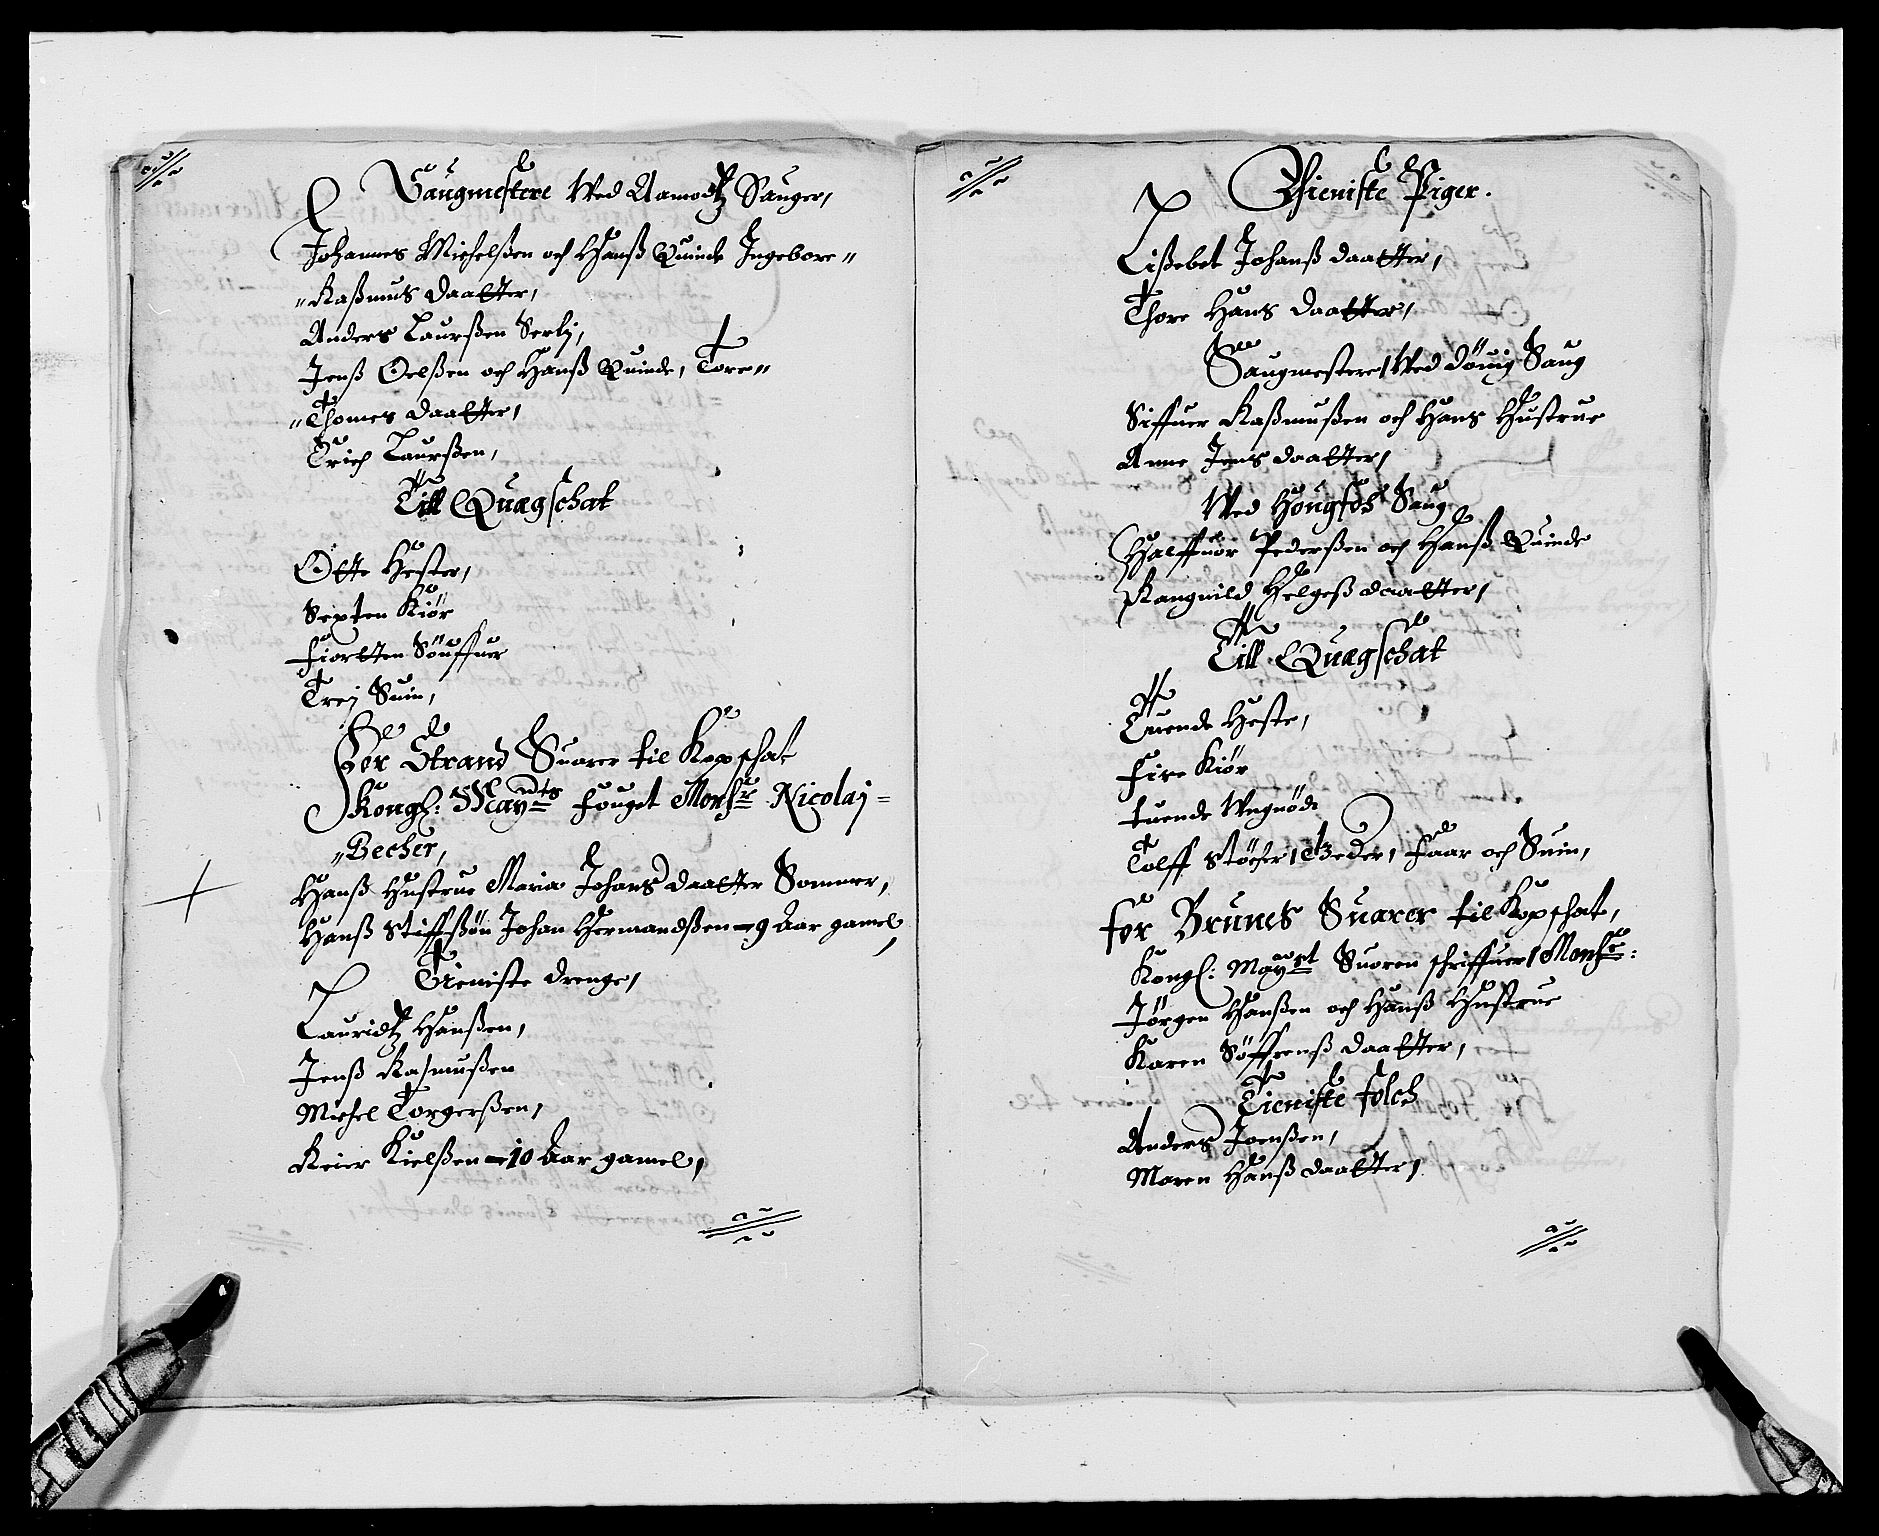 Saugmestere Wed Aamodtz Sauger,
Johannes Michelßen och Hanß Quinde Ingebore
Raßmus daatter,
Anders Laurßen Serli,
Jenß Oelßen och Hanß Quinde, Tore
Thomes daatter,
Erich Laurßen,
Till Quægschat
Otte Hester,
Sexten Kiør
Fiortten Söuffuer
Trej Suin,
For Strand Suarer til Kopschat
Kongl: Mayts fouget Monsr Nicolaj
Becher,
Hanß Hustrue Maria Johans daatter Sommer,
Hanß Stiffsøn Johan Hermandßen 9 Aar gamel,
Tieniste drenge,
Lauridtz Hanßen,
Jenß Rasmußen
Michel Torgerßen,
Reier Kielßen 10 Aar gamel,
Thieniste Piger.
Lißebet Johanß daatter,
Thore Hans daatter,
Saugmestere, Wed döuig Saug
Siffuer Raßmußen och Hans Hustrue
Anne Jens daatter,
Wed Hougfos Saug
Halffuor Pederßen och Hanß Quinde
Rangnild Helgeß daatter,
Till Quægschat
Tuende Heste,
Fire Kiør
tuende Ungnöde
Tolff støcher, Geder, Faar och Suin,
for Brunes Suarer til Kopschat,
Kongl: Mayst Suoren schriffuer, Monsr:
Jörgen Hanßen och Hanß Hustrue
Karen Söffrenß daatter,
Tieniste folch
Anders Joenßen,
Maren Hanß daatter,